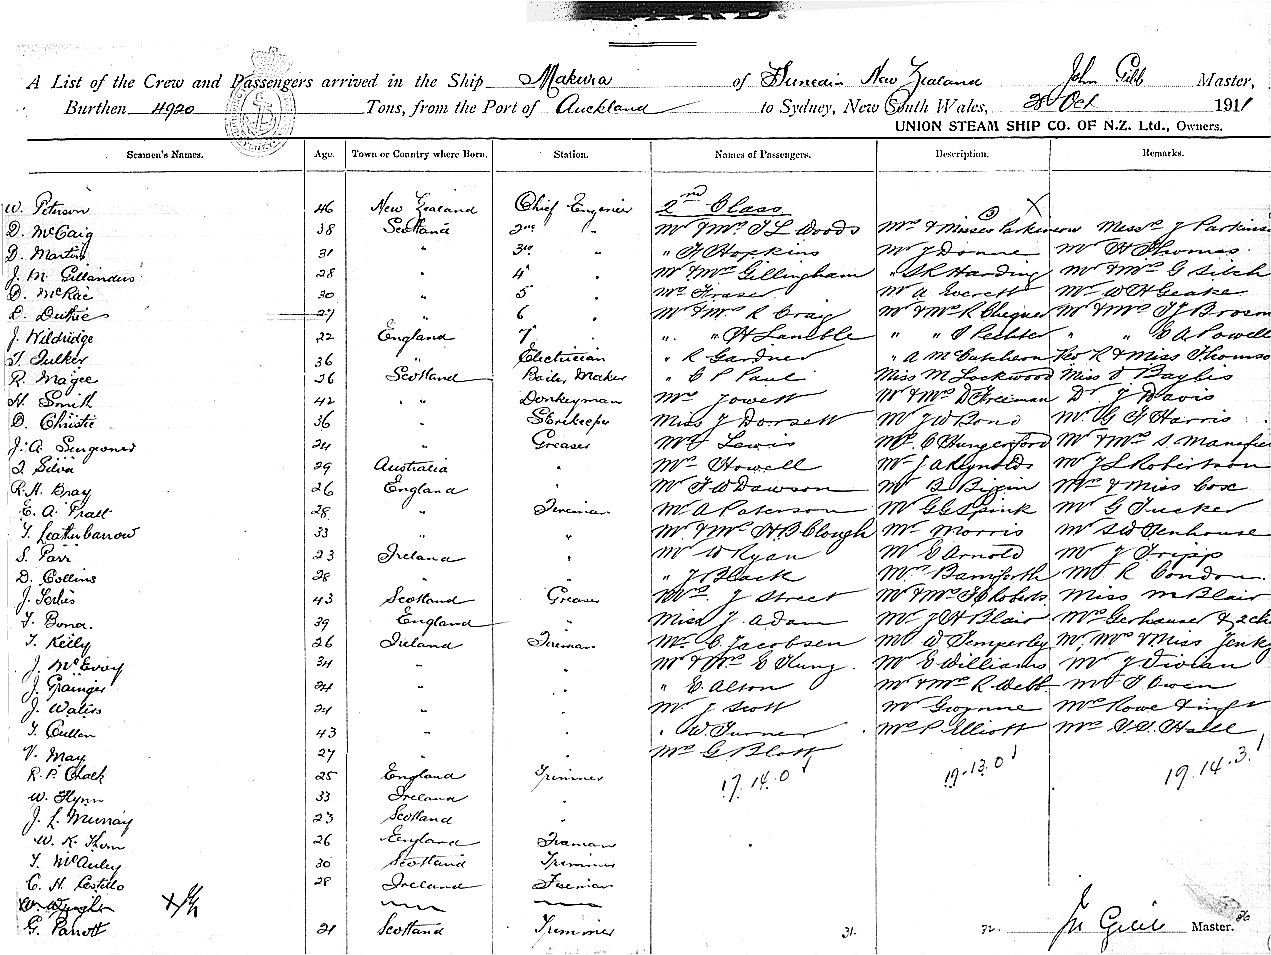 A List of the Crew and Passengers arrived in the Ship Makura of Dunedin New Zealand John Gibb Master,
Burthen 4920 Tons, from the Port of Auckland to Sydney, New South Wales, 28 Oct 1911
UNION STEAM SHIP CO. OF N.Z. Ltd., Owners.
Seamen's Names. Age. Town or Country where Born. Station. Names of Passengers. Description. Remarks.
W. Peterson 46 New Zealand Chief Engenier 2nd Class
D. McCaig 38 Scotland 2nd " Mr & Mrs T L Woods Mrs & Misses Parkinson Messrs J Parkinson
D. Martin 31 " 3rd " " F Hopkins Mr J Donne Mr H Thomas
J. M. Gillanders 28 " 4 " Mr & Mrs Gillingham " S R Harding Mr & Mrs G Sitch
D. McRae 30 " 5 " Mrs Fraser Mr A Everett Mr W H Geake
Duthie 27 " 6 " Mr & Mrs R Craig Mr & Mrs R Mr & Mrs T J Brown
J. Kildridge 22 England 7 " " H " " " " E A Powell
36 " Electrician " R Gardner " A McCutcheon Rev R & Miss Thomso
R. Magee 26 Scotland Boiler Maker " C P Paul Miss M Lockwood Miss Baylis
H. Smith 42 " " Donkeyman Mrs Jowett Mr & Mrs D Freeman Dr J Davis
D. Christie 36 " Storekeeper Miss J Dorsett Mr J W Bond Mr G F Harris
J. A. 24 " Greaser Lewis C Hungerford Mr & Mrs S. Mansfie
Silva 29 Australia " Mrs Howell Mr J A Reynolds Mr J L Robertson
R. H. Bray 26 England " Mr F W Dawson Mr B Mrs & Miss Cox
E. A. Pratt 28 " Fireman Mr A Paterson Mr G G Spink Mr G Tucker
T. Leatherbarrow 33 " " Mr & Mrs H B Clough Mr Morris Mr S W Tenhouse
S. Parr 23 Ireland " Mr W Ryan Mr C Arnold Mr J Tripp
D. Collins 28 " " " J Black Mrs Bamforth Mr R Condon
J. Forbes 43 Scotland Greaser Mrs J Street Mr & Mrs F C Roberts Miss M Blair
Bond. 39 England " Miss J Adam Mr J H Blair Mrs Gerhauser & 2 ch
T. Kelly 26 Ireland Fireman Mr C Jacobsen Mr W Temperley Mr, Mrs & Miss Jenk
J. McEvoy 34 " " Mr & Mrs E Kung Mr E Williams Mr J Vivian
J. Grainger 24 " " " E Alton Mr & Mrs R Webb Mr F Owen
J. Waters 24 " " Mr J Scott Mr Gwynne Mrs Rowe & inft
T. Cullen 43 " " " W. Turner Mrs P Elliott Mrs Hall
V. May 27 " " Mrs G Blott
R. P. Chack 25 England Trimmer 17.14.0 17.13.0 19.14.3
W. Flynn 33 Ireland "
J. L. Murray 23 Scotland "
W. K. Thom 26 England Fireman
T. McAuley 30 Scotland Trimmer
C. H. Costello 28 Ireland Fireman
G. Parrott 21 Scotland Trimmer 31. 32. Master. 36